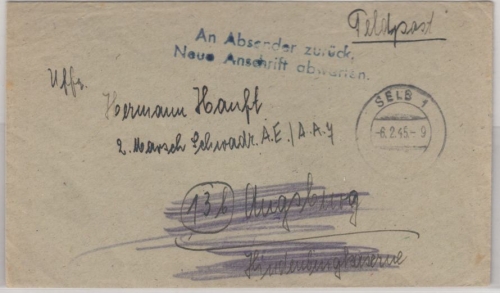 Feldpost
An Absender zurück,
Neue Anschrift abwarten.
Uffz.
Hermann Hauft
2. Marsch Schwadr. A.E./A.A.7
SELB 1
-6.2.45-9
13b Augsburg
Hindenburgkaserne